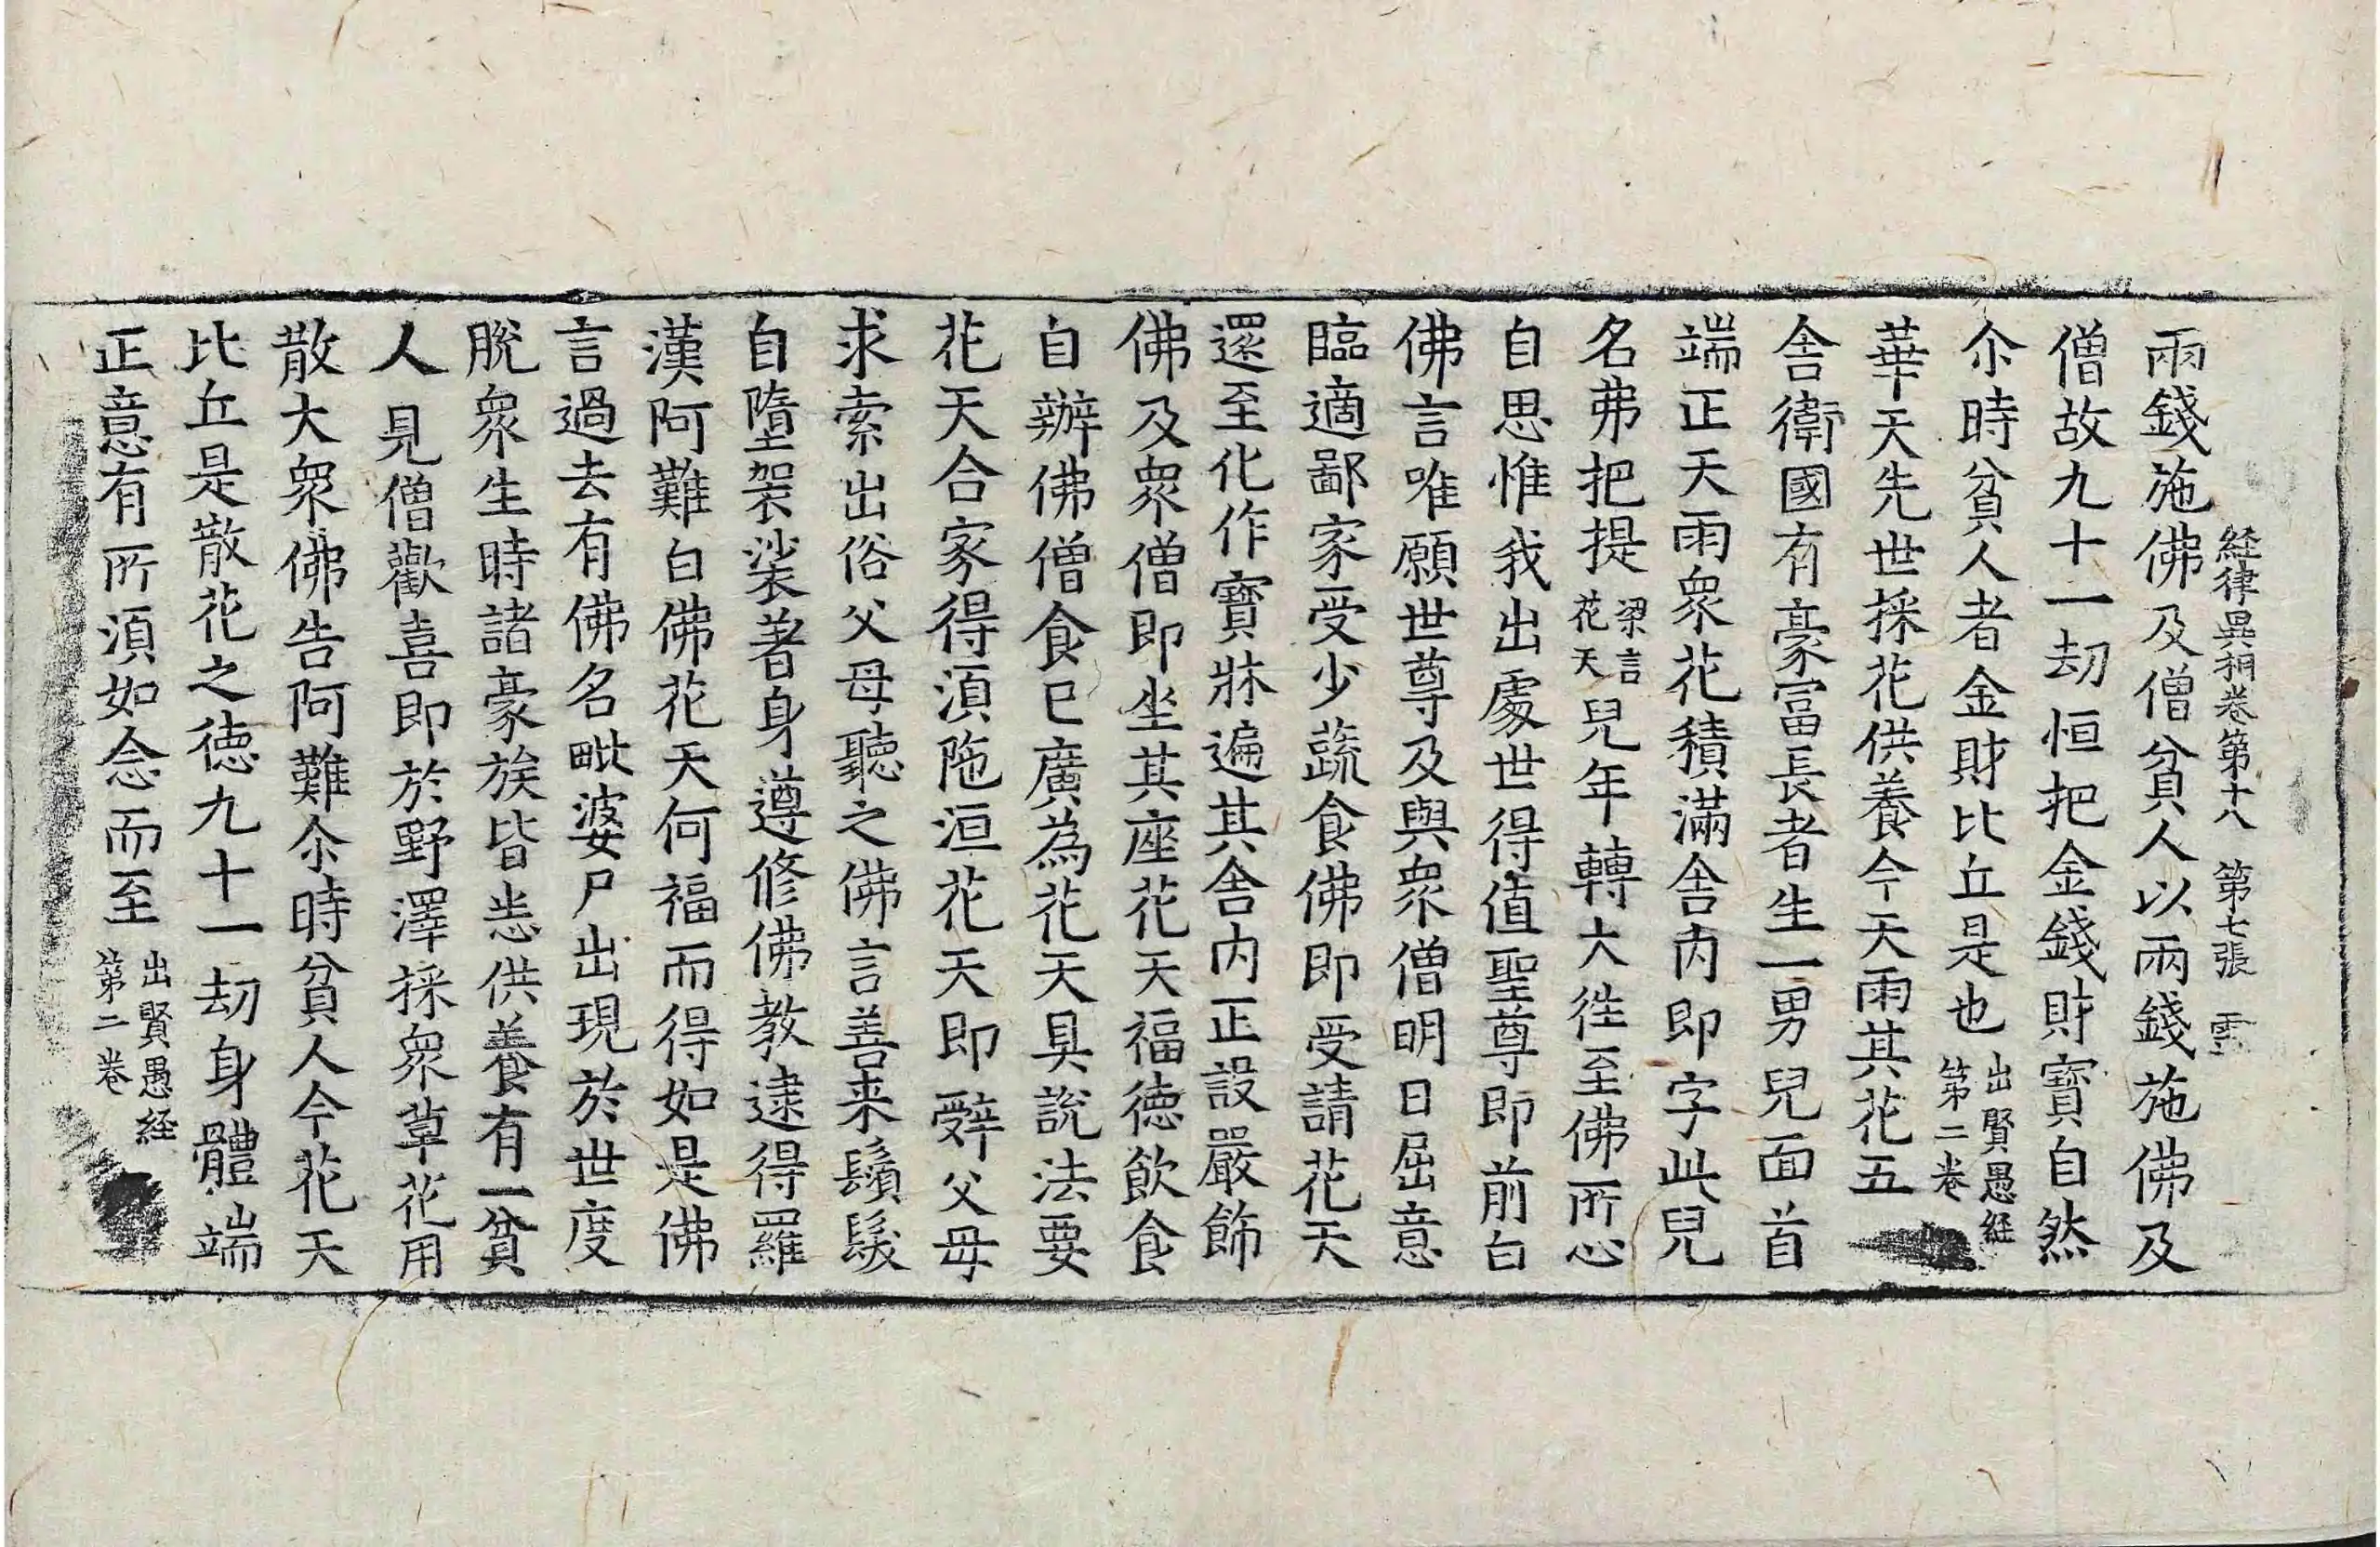 経律異相卷第十八 第七張 雲
兩錢施佛及僧貧人以兩錢施佛及
僧故九十一劫恒把金錢財寶自然
尒時貧人者金財比丘是也出賢愚経第二卷
華天先世採花供養今天雨其花五
舎衛國有豪冨長者生一男兒面首
端正天雨衆花積滿舎内即字此兒
名弗把提梁言花天兒年轉大徃至佛所心
自思惟我出處世得值聖尊即前白
佛言唯願世尊及與衆僧明日屈意
臨適鄙家受少蔬食佛即受請花天
還至化作寶牀遍其舎内正設嚴飾
佛及衆僧即坐其座花天福德飲食
自辦佛僧食已廣為花天具説法要
花天合家得湏陁洹花天即辤父母
求索出俗父母聽之佛言善来鬚髮
自墮袈裟著身遵修佛教逮得羅
漢阿難白佛花天何福而得如是佛
言過去有佛名毗婆尸出現於世度
脫衆生時諸豪族皆悉供養有一貧
人見僧歡喜即於野澤採衆草花用
散大衆佛告阿難尒時貧人今花天
比丘是散花之德九十一劫身體端
正意有所湏如念而至出賢愚経第二卷